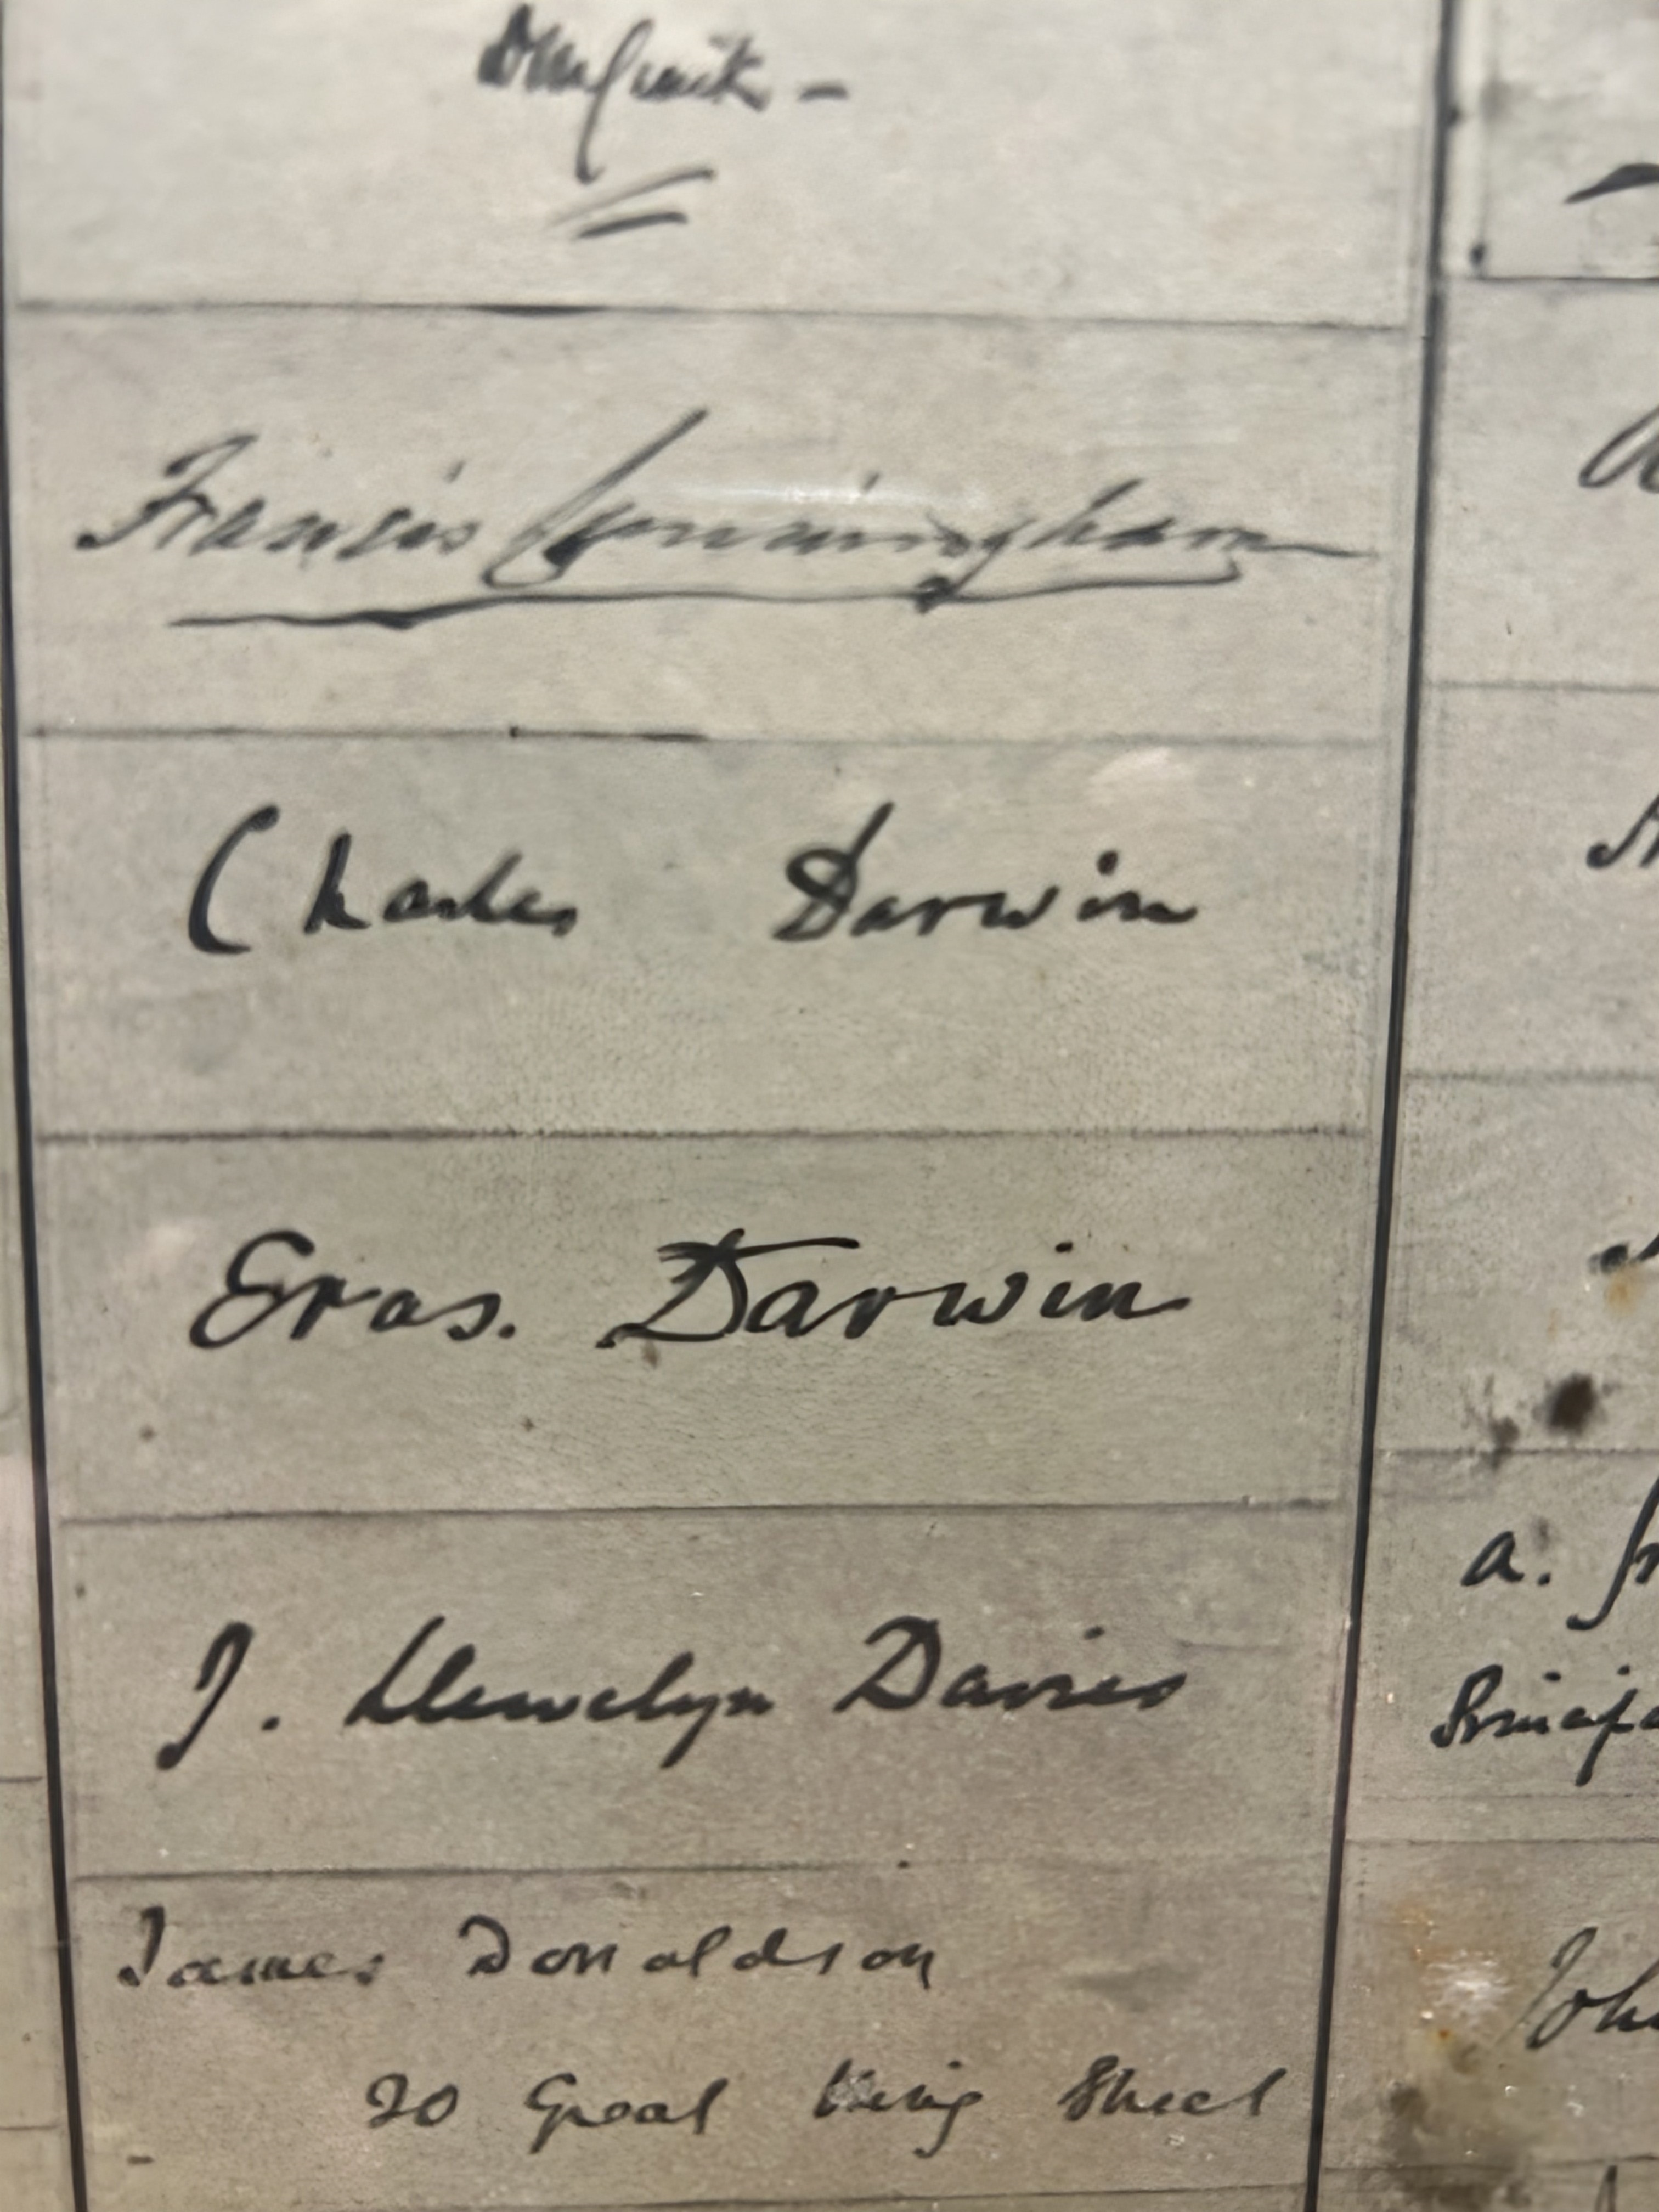 Francis Cunningham
Charles Darwin
Eras. Darwin
J. Llewelyn Davies
James Donaldson
20 Great King Street
a.